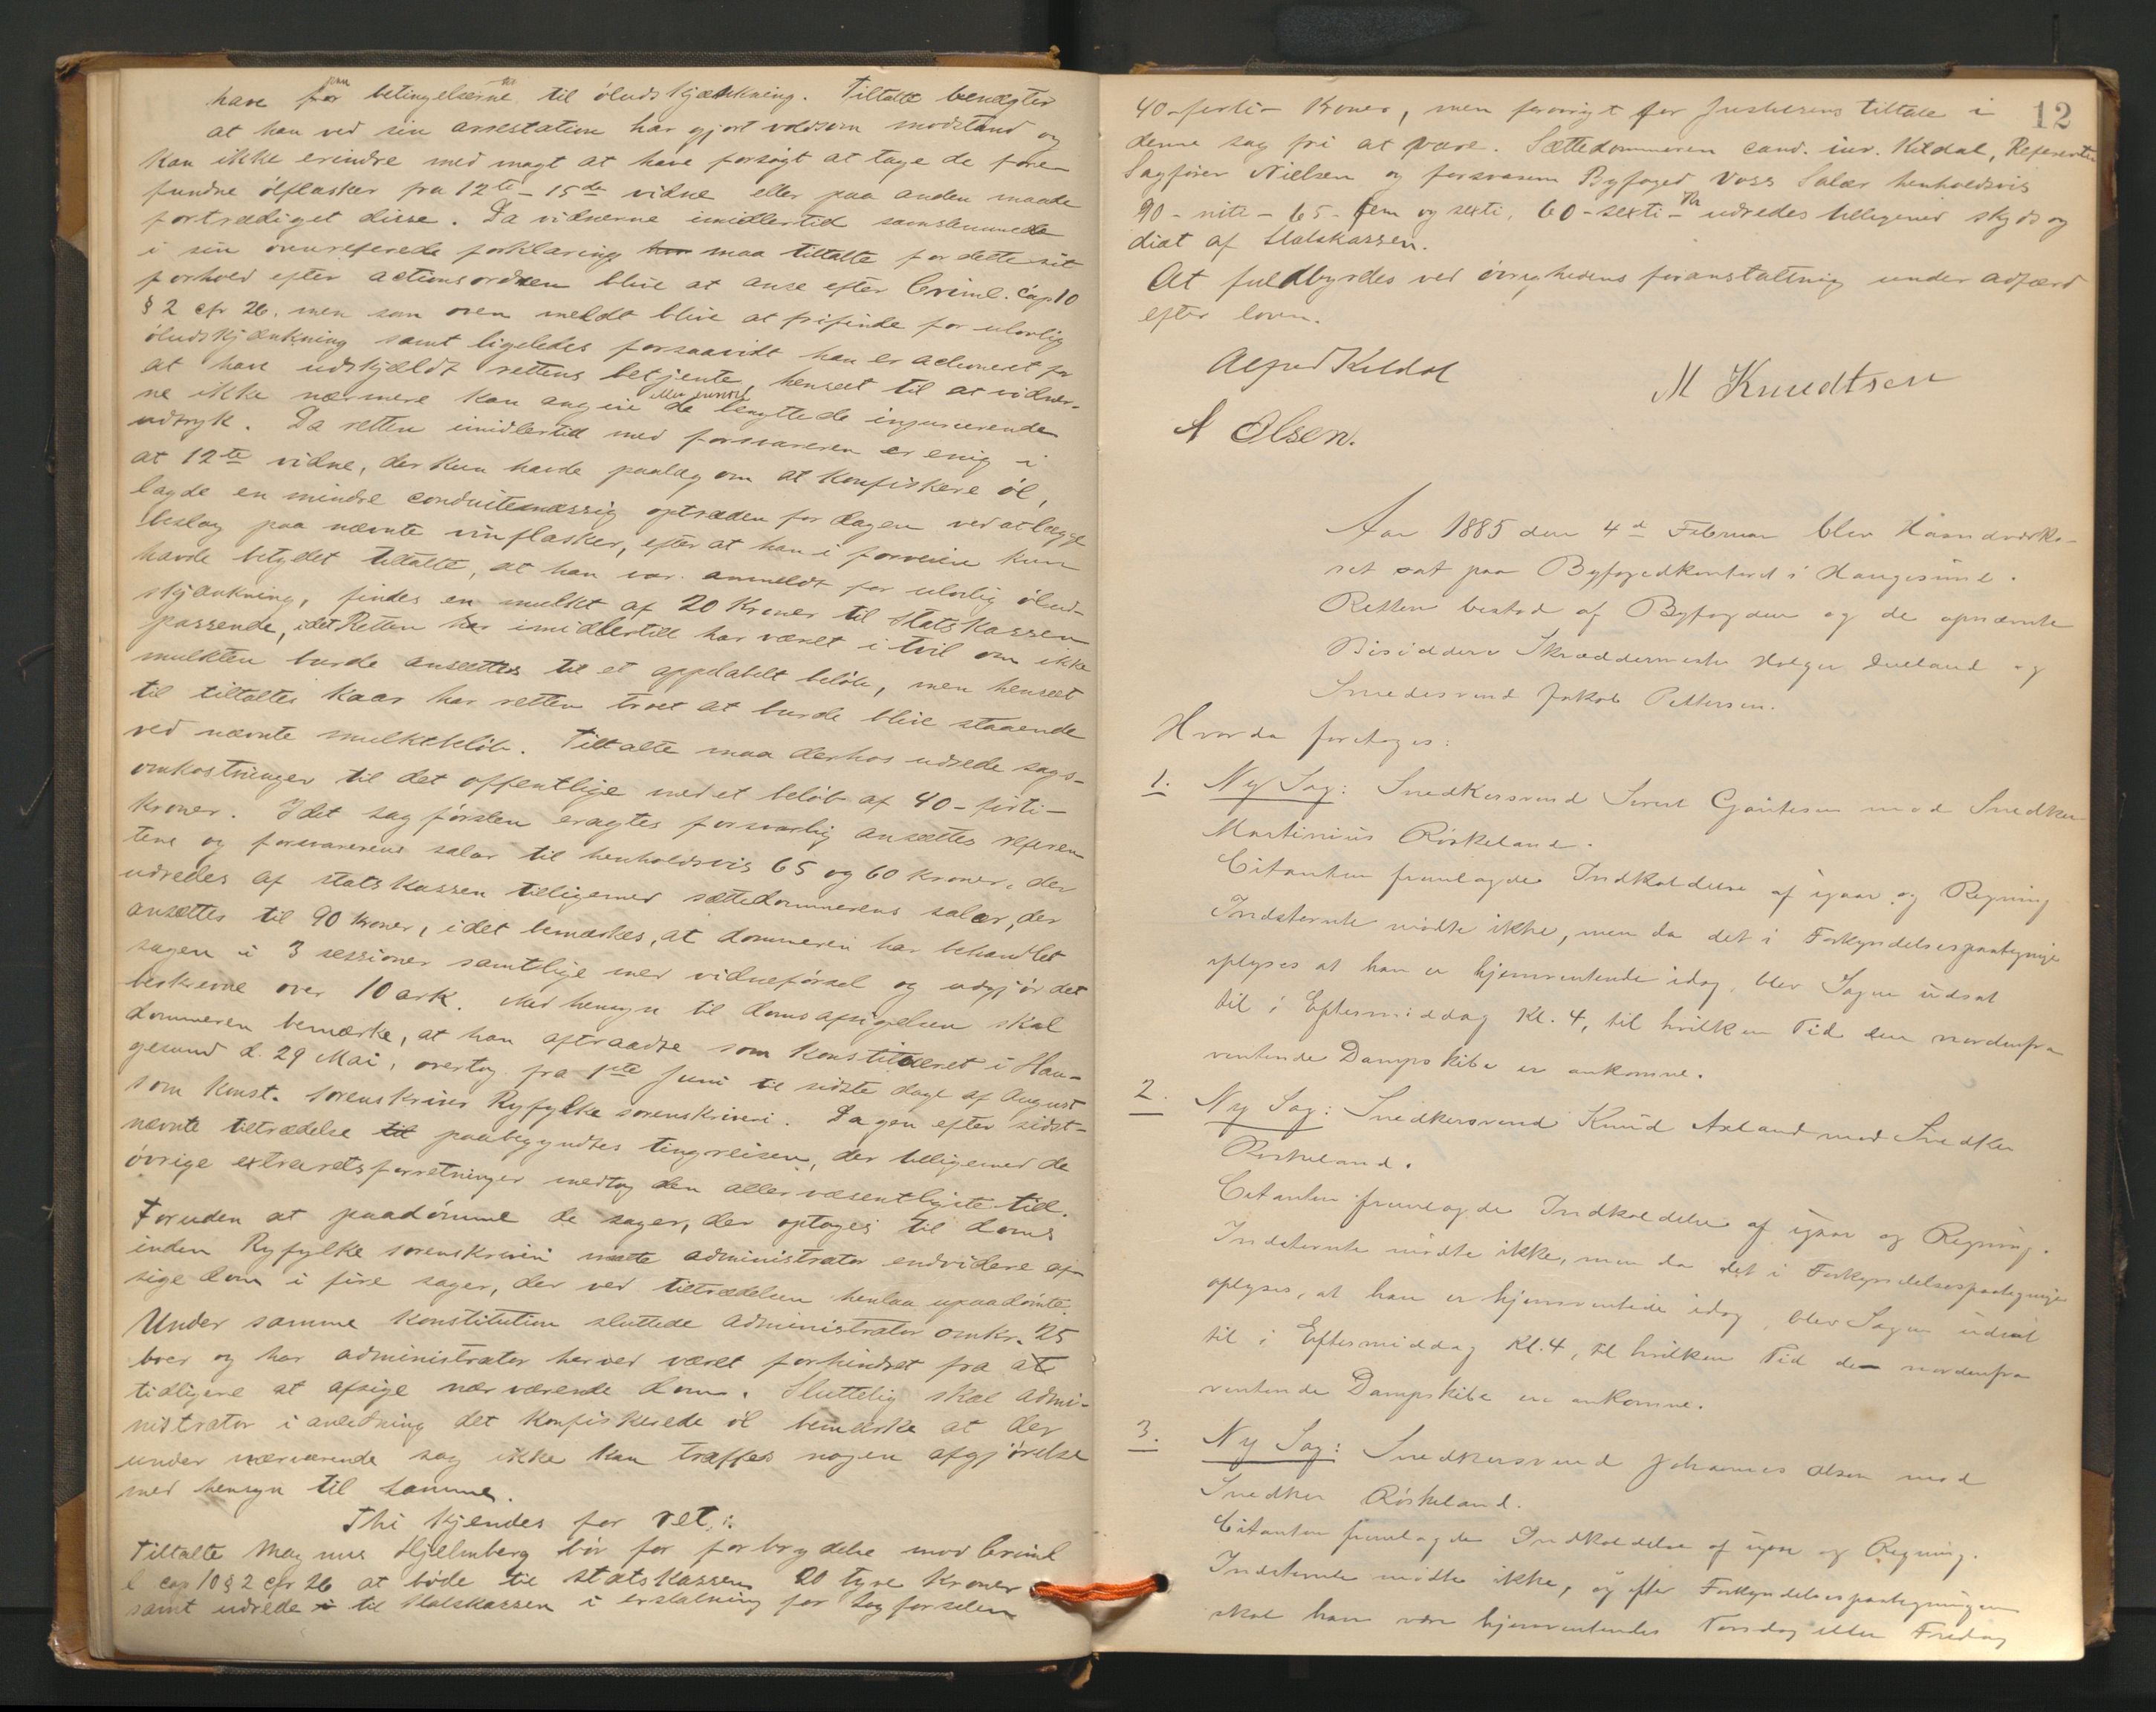 have før betingelserne til øludskjænkning. Tiltalte benegter
at han ved sin arrestation har gjort voldsom modstand og
kan ikke erindre med magt at have forsøgt at tage de fore-
fundne ølflasker fra 12te - 15de vidne eller paa anden maade
fortrædiget disse. Da vidnerne imidlertid samstemmede
i sin ovenrefererede forklaring maa tiltalte for dette sit
forhold efter actionsordren blive at anse efter Criml. Cap 10
§ 2 cfr 26, men som oven meldt blive at frifinde for ulovlig
øludskjænkning samt ligeledes forsaavidt han er actioneret for
at have udskjældt rettens betjente, henseet til at vidner-
ne ikke nærmere kan angive de benyttede injurierende
udtryk. Da retten imidlertid med forsvareren er enig i
at 12te vidne, der kun havde paalæg om at konfiskere øl,
lagde en mindre conduitemæssig optræden for dagen ved at lægge
beslag paa nævnte vinflasker, efter at han i forveien kun
havde betydet tiltalte, at han var anmeldt for ulovlig ølud-
skjænkning, findes en mulkt af 20 Kroner til Statskassen
passende, idet Retten her imidlertid har været i tvil om ikke
mulkten burde ansættes til et appelabelt beløb, men henseet
til tiltaltes kaar har retten troet at burde blive staaende
ved nævnte mulktbeløb. Tiltalte maa derhos udrede sags-
omkostninger til det offentlige med et beløb af 40 - firti -
kroner. Idet sagførslen eragtes forsvarlig ansættes referen-
tens og forsvarerens salær til henholdsvis 65 og 60 kroner, der
udredes af statskassen tilligemed sættedommerens salær, der
ansættes til 90 kroner, idet bemærkes, at dommeren har behandlet
sagen i 3 sessioner samtlige med vidneførsel og udgjør det
beskrevne over 10 ark. Med hensyn til domsafsigelsen skal
dommeren bemærke, at han aftraadte som konstitueret i Hau-
gesund d. 29 Mai, overtog fra 1ste Juni til sidste dage af August
som konst. sorenskriver Ryfylke sorenskriveri. Dagen efter sidst-
nævnte tiltrædelse til paabegyndtes tingreisen, der tilligemed de
øvrige extraretsforretninger medtog den allervæsentligste tid.
Foruden at paadømme de sager, der optoges til doms
inden Ryfylke sorenskriveri maatte administrator endvidere af-
sige dom i fire sager, der ved tiltrædelsen henlaa upaadømte.
Under samme konstitution sluttede administrator omkr. 25
boer og har administrator herved været forhindret fra at
tidligere at afsige nærværende dom. Sluttelig skal admi-
nistrator i anledning det konfiskerede øl bemærke at der
under nærværende sag ikke kan træffes nogen afgjørelse
med hensyn til samme.
Thi kjendes for ret:
Tiltalte Magnus Hjelmberg bør for forbrydelse mod Criml
l cap 10 § 2 cfr 26 at bøde til statskassen 20 tyve Kroner
samt udrede til Statskassen i erstatning for Sagførselen
12
40 - førti - Kroner, men forøvrigt for Justitsens tiltale i
denne sag fri at være. Sættedommeren cand. jur. Kildal, Referenten
Sagfører Nielsen og forsvareren Byfoged Voss Salær henholdsvis
90 - niti - 65 - fem og sexti, 60 - sexti - Kr udredes tilligemed skyds og
diæt af Statskassen.
At fuldbyrdes ved øvrighedens foranstaltning under adfærd
efter loven.
Alfred Kildal
M Knudtsen
A Olsen.
Aar 1885 den 4de Februar blev Haandværks-
ret sat paa Byfogedkontoret i Haugesund.
Retten bestod af Byfogden og de opnævnte
Bisiddere Skræddermester Holger Dueland og
Smedesvend Jakob Pettersen.
Hvorda foretoges:
1. Ny Sag: Snedkersvend Sivert Gautesen mod Snedker
Martinius Röskeland.
Citanten fremlagde Indkaldelse af igaar og Regning
Indstevnte mødte ikke, men da det i Forkyndelsespaategninge
oplyses at han er hjemventende idag, blev Sagen udsat
til i Eftermiddag Kl. 4, til hvilken Tid den nordenfra
ventende Dampskibe er ankomne.
2. Ny Sag: Snedkersvend Knud Axland mod Snedker
Röskeland.
Citanten fremlagde Indkaldelse af igaar og Regning.
Indstevnte mødte ikke, men da det i Forkyndelsespaategninge
oplyses, at han er hjemventende idag, blev Sagen udsat
til i Eftermiddag Kl. 4, til hvilken Tid de nordenfra
ventende Dampskibe er ankomne.
3. Ny Sag: Snedkersvend Johannes Olsen mod
Snedker Röskeland.
Citanten fremlagde Indkaldelse af igaar og Regning.
Indstevnte mødte ikke, og efter Forkyndelsespaategningen
skal han være hjemventendes Torsdag eller Fredag